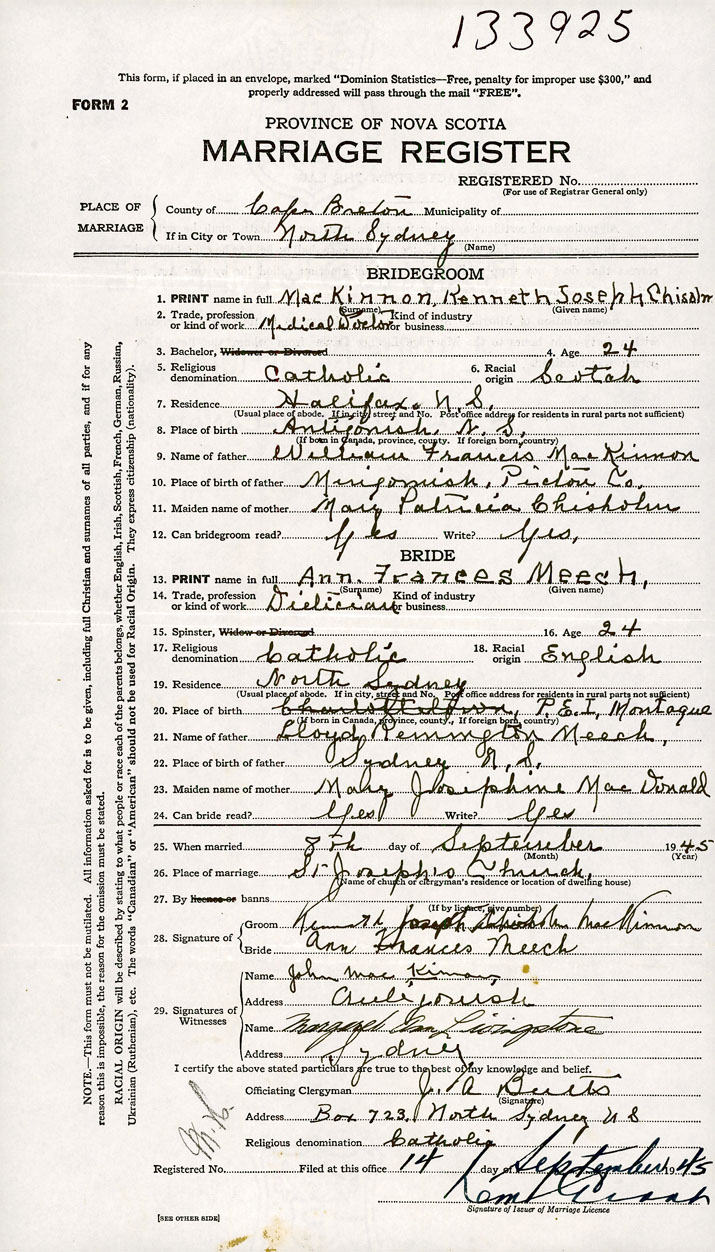 133925
This form, if placed in an envelope, marked "Dominion Statistics—Free, penalty for improper use $300," and
properly addressed will pass through the mail "FREE".
FORM 2
PROVINCE OF NOVA SCOTIA
MARRIAGE REGISTER
REGISTERED No.
(For use of Registrar General only)
PLACE OF MARRIAGE
County of Cape Breton Municipality of
If in City or Town North Sydney
(Name)
BRIDEGROOM
1. PRINT name in full MacKinnon, Kenneth Joseph Chisolm
(Surname) (Given name)
2. Trade, profession or kind of work Medical Doctor Kind of industry or business
3. Bachelor, Widower or Divorced 4. Age 24
5. Religious denomination Catholic 6. Racial origin Scotch
7. Residence Halifax. N.S.
(Usual place of abode. If in city, street and No. Post office address for residents in rural parts not sufficient)
8. Place of birth Antigonish N.S.
(If born in Canada, province, county. If foreign born, country)
9. Name of father William Francis MacKinnon
10. Place of birth of father Merigomish, Pictou Co.
11. Maiden name of mother Mary Patricia Chisholm
12. Can bridegroom read? Yes Write? Yes,
BRIDE
13. PRINT name in full Ann. Frances Meech,
(Surname) (Given name)
14. Trade, profession or kind of work Dietician Kind of industry or business
15. Spinster, Widow or Divorced 16. Age 24
17. Religious denomination Catholic 18. Racial origin English
19. Residence North Sydney
(Usual place of abode. If in city, street and No. Post office address for residents in rural parts not sufficient)
20. Place of birth Charlottetown, P.E.I, Montague
(If born in Canada, province, county., If foreign born, country)
21. Name of father Lloyd Remington Meech,
22. Place of birth of father Sydney N.S.
23. Maiden name of mother Mary Josephine MacDonald
24. Can bride read? Yes Write? Yes
25. When married 8th day of September 1945
(Month) (Year)
26. Place of marriage St Joseph's Church,
(Name of church or clergyman's residence or location of dwelling house)
27. By licence or banns
(If by licence, give number)
28. Signature of
Groom Kenneth Joseph Chisholm MacKinnon
Bride Ann Frances Meech
29. Signatures of Witnesses
Name John Mac Kinnon,
Address Antigonish
Name Margaret Ann Livingstone
Address Sydney
I certify the above stated particulars are true to the best of my knowledge and belief.
Officiating Clergyman J. A. Butts
(Signature)
Address Box 723, North Sydney N S
Religious denomination Catholic
Registered No. Filed at this office 14 day of September 1945
Signature of Issuer of Marriage Licence
[SEE OTHER SIDE]
NOTE.—This form must not be mutilated. All information asked for is to be given, including full Christian and surnames of all parties, and if for any
reason this is impossible, the reason for the omission must be stated.
RACIAL ORIGIN will be described by stating to what people or race each of the parents belongs, whether English, Irish, Scottish, French, German, Russian,
Ukrainian (Ruthenian), etc. The words "Canadian" or "American" should not be used for Racial Origin. They express citizenship (nationality).